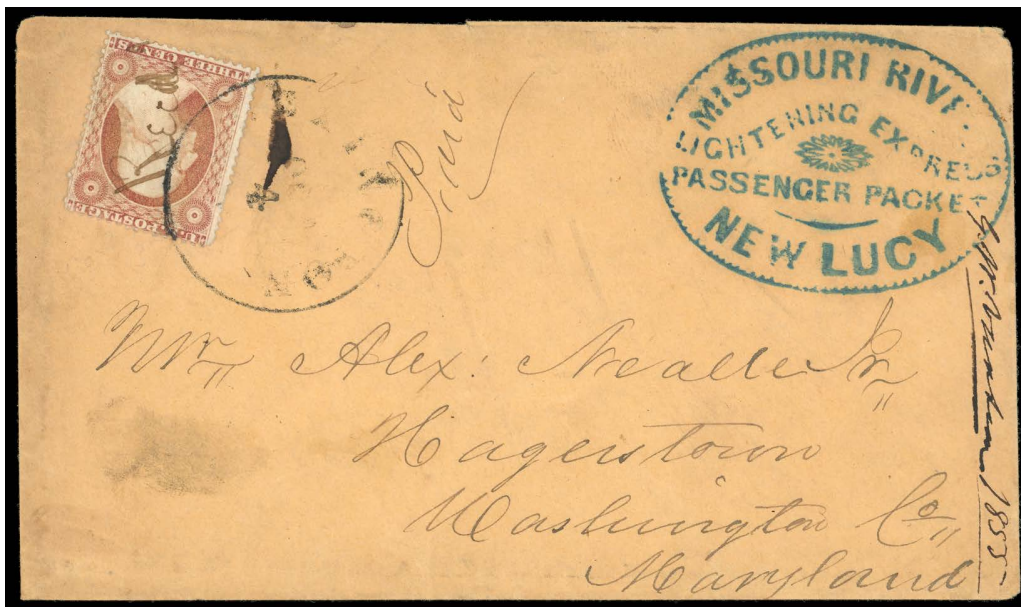 THREE CENTS
U.S. POSTAGE
Rec'd
Paid
MISSOURI RIV
LIGHTENING EXPRESS
PASSENGER PACKET
NEW LUCY
Mr Alex: Nealle Jr
Hagerstown
Washington Co
Maryland
1855